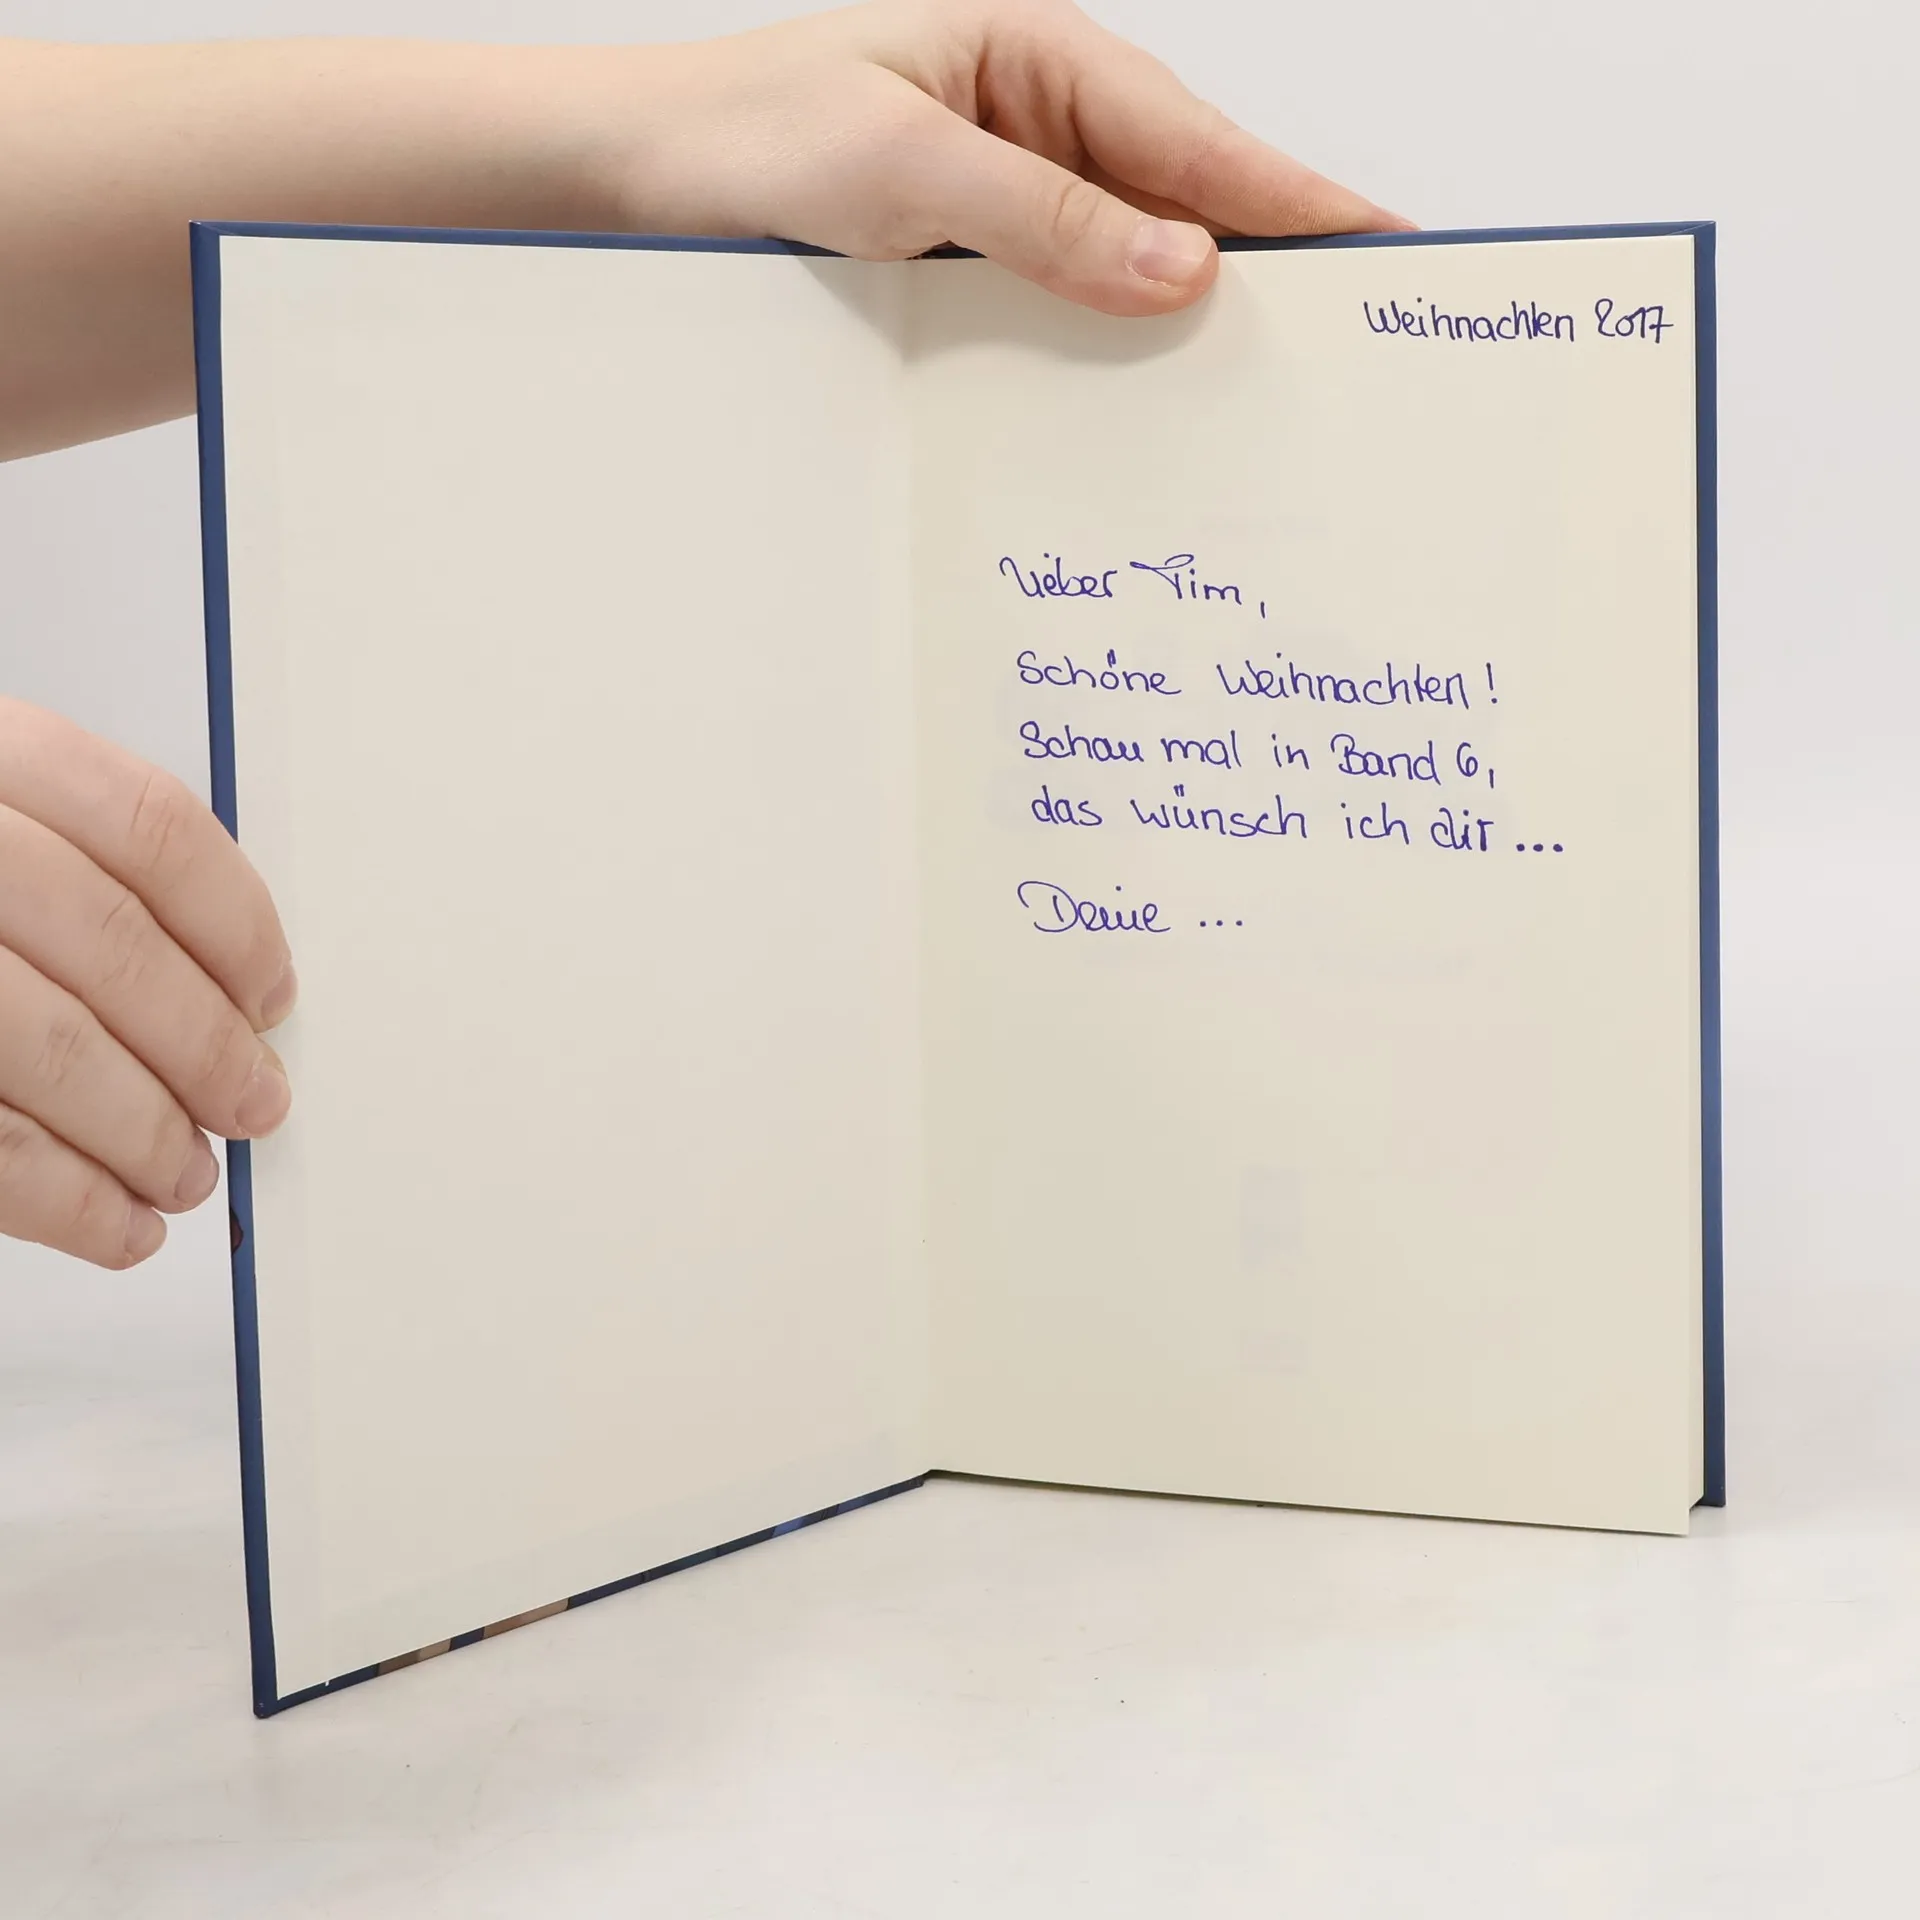 Weihnachten 2017
Lieber Tim,
Schöne Weihnachten!
Schau mal in Band 6,
das wünsch ich dir ...
Deine ...